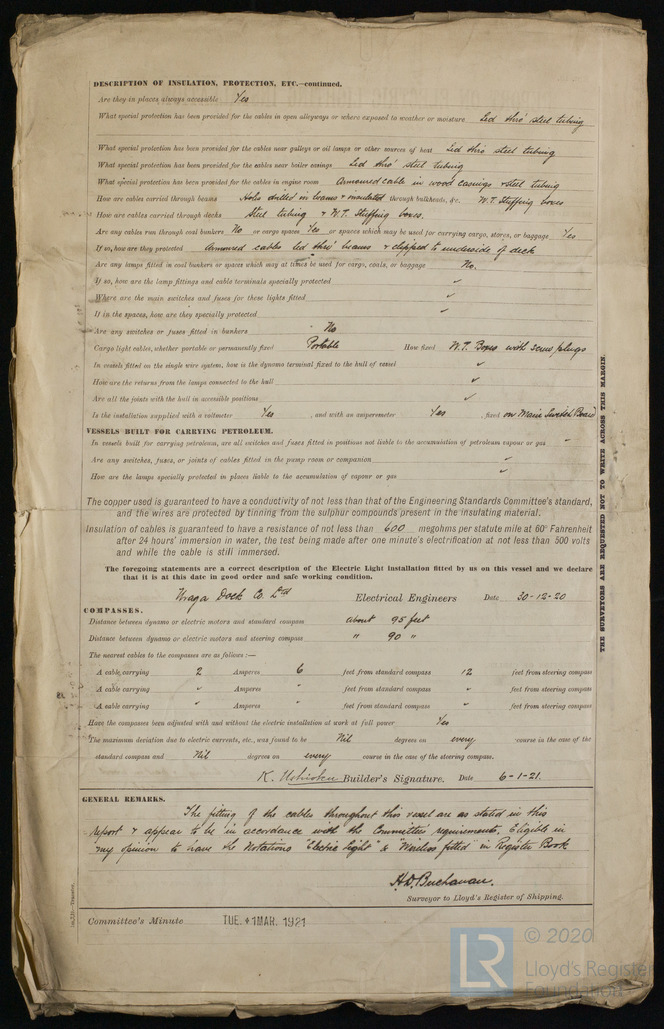 DESCRIPTION OF INSULATION, PROTECTION, ETC.—continued.
Are they in places always accessible Yes
What special protection has been provided for the cables in open alleyways or where exposed to weather or moisture Led thro' steel tubing
What special protection has been provided for the cables near galleys or oil lamps or other sources of heat Led thro steel tubing
What special protection has been provided for the cables near boiler casings Led thro' steel tubing
What special protection has been provided for the cables in engine room Armoured cable in wood casings & steel tubing
How are cables carried through beams Holes drilled in beams & insulated through bulkheads, &c. W.T. Stuffing boxes
How are cables carried through decks Steel tubing & W.T. Stuffing boxes.
Are any cables run through coal bunkers No or cargo spaces Yes or spaces which may be used for carrying cargo, stores, or baggage Yes
If so, how are they protected Armoured cables led thro' beams & clipped to underside of deck
Are any lamps fitted in coal bunkers or spaces which may at times be used for cargo, coals, or baggage No.
If so, how are the lamp fittings and cable terminals specially protected ✓
Where are the main switches and fuses for these lights fitted ✓
If in the spaces, how are they specially protected ✓
Are any switches or fuses fitted in bunkers No
Cargo light cables, whether portable or permanently fixed Portable How fixed W.T. Boxes with screw plugs
In vessels fitted on the single wire system, how is the dynamo terminal fixed to the hull of vessel ✓
How are the returns from the lamps connected to the hull ✓
Are all the joints with the hull in accessible positions ✓
Is the installation supplied with a voltmeter Yes , and with an amperemeter Yes , fixed on Main Switch Board
VESSELS BUILT FOR CARRYING PETROLEUM.
In vessels built for carrying petroleum, are all switches and fuses fitted in positions not liable to the accumulation of petroleum vapour or gas ✓
Are any switches, fuses, or joints of cables fitted in the pump room or companion ✓
How are the lamps specially protected in places liable to the accumulation of vapour or gas ✓
The copper used is guaranteed to have a conductivity of not less than that of the Engineering Standards Committee's standard,
and the wires are protected by tinning from the sulphur compounds present in the insulating material.
Insulation of cables is guaranteed to have a resistance of not less than 600 megohms per statute mile at 60° Fahrenheit
after 24 hours' immersion in water, the test being made after one minute's electrification at not less than 500 volts
and while the cable is still immersed.
The foregoing statements are a correct description of the Electric Light installation fitted by us on this vessel and we declare
that it is at this date in good order and safe working condition.
Uraga Dock Co Ltd Electrical Engineers Date 30-12-20
COMPASSES.
Distance between dynamo or electric motors and standard compass about 95 feet
Distance between dynamo or electric motors and steering compass " 90 "
The nearest cables to the compasses are as follows:—
A cable carrying 2 Amperes 6 feet from standard compass 12 feet from steering compass
A cable carrying " Amperes " feet from standard compass " feet from steering compass
A cable carrying " Amperes " feet from standard compass " feet from steering compass
Have the compasses been adjusted with and without the electric installation at work at full power Yes
The maximum deviation due to electric currents, etc., was found to be Nil degrees on every course in the case of the
standard compass and Nil degrees on every course in the case of the steering compass.
K. Uchioku Builder's Signature. Date 6-1-21.
GENERAL REMARKS.
The fitting of the cables throughout this vessel are as stated in this
report & appear to be in accordance with the Committee's requirements. Eligible in
my opinion to have the Notations "Electric light" & Wireless fitted" in Register Book
H.D. Buchanan.
Surveyor to Lloyd's Register of Shipping.
Committee's Minute TUE. 1 MAR. 1921
THE SURVEYORS ARE REQUESTED NOT TO WRITE ACROSS THIS MARGIN.
LR
© 2020
Lloyd's Register
Foundation